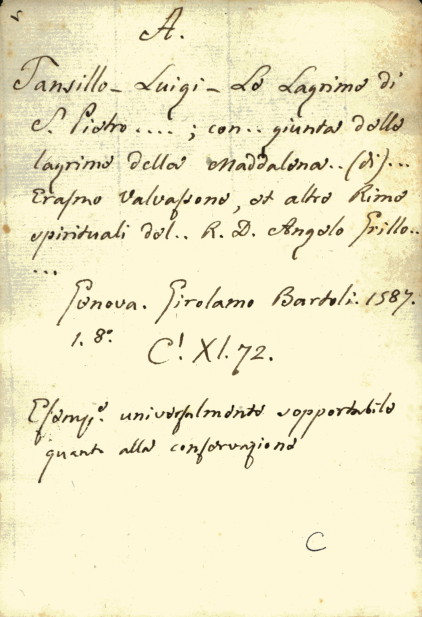 A.
Tansillo - Luigi - Le Lagrime di
S. Pietro .... ; con.. giunta delle
lagrime della Maddalena.. (di)...
Erasmo Valvassone, et altre Rime
spirituali del.. R. D. Angelo Grillo..
...
Genova. Girolamo Bartoli. 1587.
1. 8.º
C! XI. 72.
universalmente sopportabile
quanto alla conservazione
C